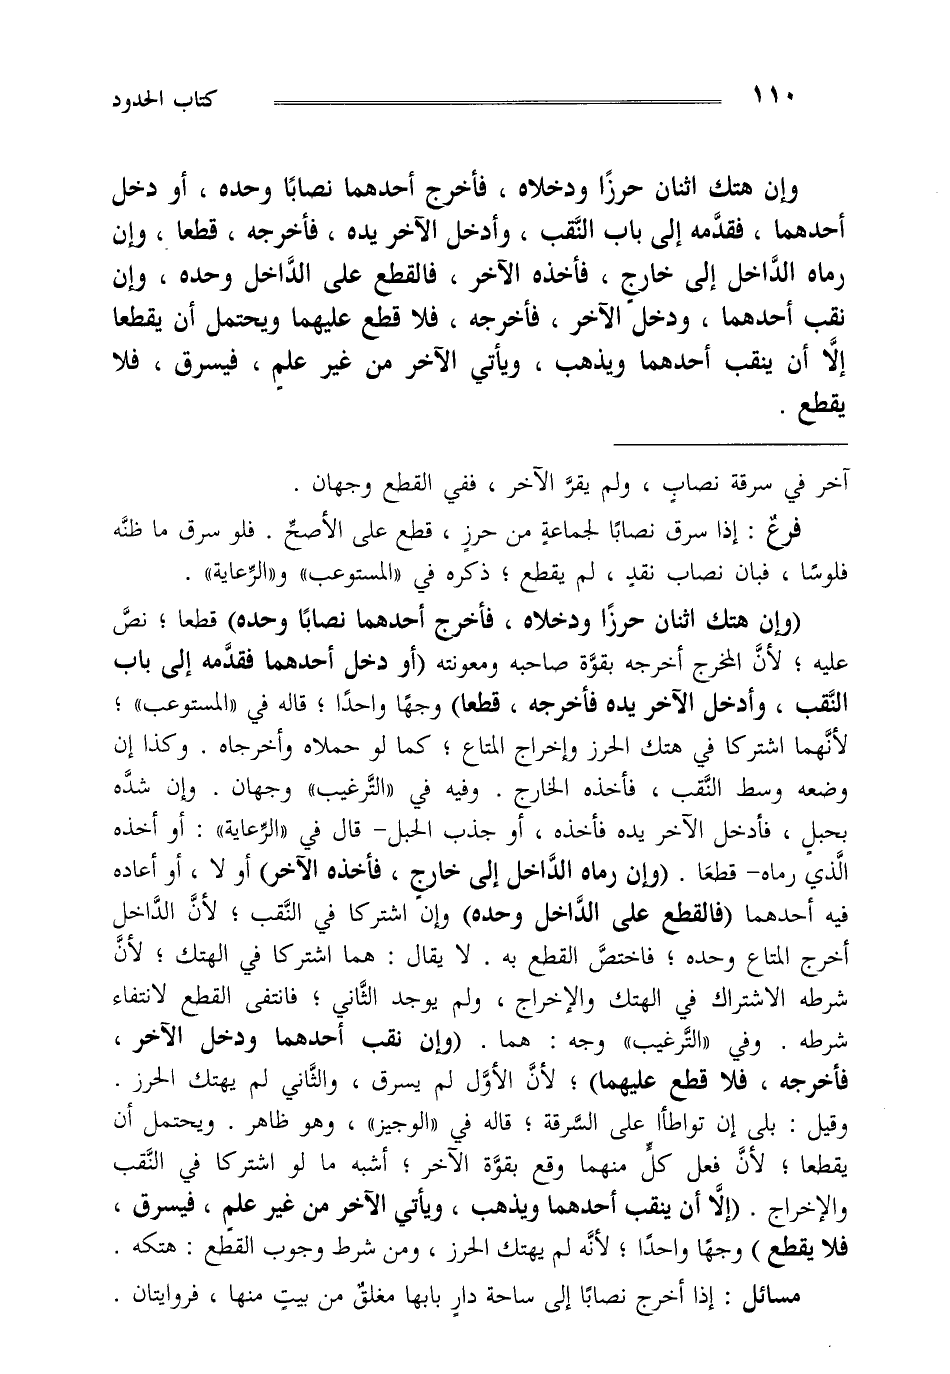 ١١٠ كتاب الحدود
وإن هتك اثنان حرزًا ودخلاه ، فأخرج أحدهما نصابًا وحده ، أو دخل
أحدهما ، فقدَّمه إلى باب النَّقب ، وأدخل الآخر يده ، فأخرجه ، قطعا ، وإن
رماه الدَّاخل إلى خارجٍ ، فأخذه الآخر ، فالقطع على الدَّاخل وحده ، وإن
نقب أحدهما ، ودخل الآخر ، فأخرجه ، فلا قطع عليهما ويحتمل أن يقطعا
إلَّا أن ينقب أحدهما ويذهب ، ويأتي الآخر من غير علمٍ ، فيسرق ، فلا
يقطع .
آخر في سرقة نصابٍ ، ولم يقرَّ الآخر ، ففي القطع وجهان .
فرعٌ : إذا سرق نصابًا لجماعةٍ من حرزٍ ، قطع على الأصحِّ . فلو سرق ما ظنَّه
فلوسًا ، فبان نصاب نقدٍ ، لم يقطع ؛ ذكره في «المستوعب» و«الرِّعاية» .
(وإن هتك اثنان حرزًا ودخلاه ، فأخرج أحدهما نصابًا وحده) قطعا ؛ نصَّ
عليه ؛ لأنَّ المخرج أخرجه بقوَّة صاحبه ومعونته (أو دخل أحدهما فقدَّمه إلى باب
النَّقب ، وأدخل الآخر يده فأخرجه ، قطعا) وجهًا واحدًا ؛ قاله في «المستوعب» ؛
لأنَّهما اشتركا في هتك الحرز وإخراج المتاع ؛ كما لو حملاه وأخرجاه . وكذا إن
وضعه وسط النَّقب ، فأخذه الخارج . وفيه في «التَّرغيب» وجهان . وإن شدَّه
بحبلٍ ، فأدخل الآخر يده فأخذه ، أو جذب الحبل- قال في «الرِّعاية» : أو أخذه
الَّذي رماه- قطعَا . (وإن رماه الدَّاخل إلى خارجٍ ، فأخذه الآخر) أو لا ، أو أعاده
فيه أحدهما (فالقطع على الداخل وحده) وإن اشتركا في النَّقب ؛ لأنَّ الدَّاخل
أخرج المتاع وحده ؛ فاختصَّ القطع به . لا يقال : هما اشتركا في الهتك ؛ لأنَّ
شرطه الاشتراك في الهتك والإخراج ، ولم يوجد الثَّاني ؛ فانتفى القطع لانتفاء
شرطه . وفي «التَّرغيب» وجه : هما . (وإن نقب أحدهما ودخل الآخر ،
فأخرجه ، فلا قطع عليهما) ؛ لأنَّ الأوَّل لم يسرق ، والثَّاني لم يهتك الحرز .
وقيل : بلى إن تواطأا على السَّرقة ؛ قاله في «الوجيز» ، وهو ظاهر . ويحتمل أن
يقطعا ؛ لأنَّ فعل كلٍّ منهما وقع بقوَّة الآخر ؛ أشبه ما لو اشتركا في النَّقب
والإخراج . (إلَّا أن ينقب أحدهما ويذهب ، ويأتي الآخر من غير علمٍ ، فيسرق ،
فلا يقطع ) وجهًا واحدًا ؛ لأنَّه لم يهتك الحرز ، ومن شرط وجوب القطع : هتكه .
مسائل : إذا أخرج نصابًا إلى ساحة دارٍ بابها مغلقٌ من بيتٍ منها ، فروايتان .